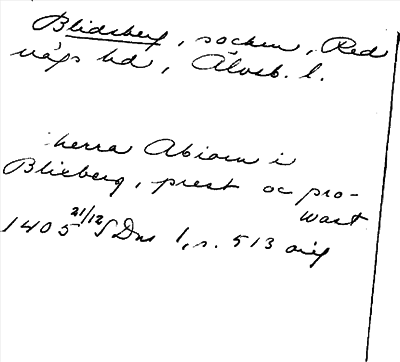 Blidsberg, socken, Red
vägs hd, Älvsb. l.
herra Abiorn i
Blieberg, prest oc pro-
wast
1405 21/12 SDns 1, s. 513 orig